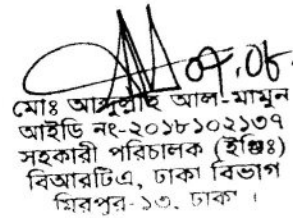 ০৭.০৮.
মোঃ আব্দুল্লাহ আল-মামুন
আইডি নং-২০১৮১০২১৩৭
সহকারী পরিচালক (ইঞ্জিঃ)
বিআরটিএ, ঢাকা বিভাগ
মিরপুর-১৩, ঢাকা ।